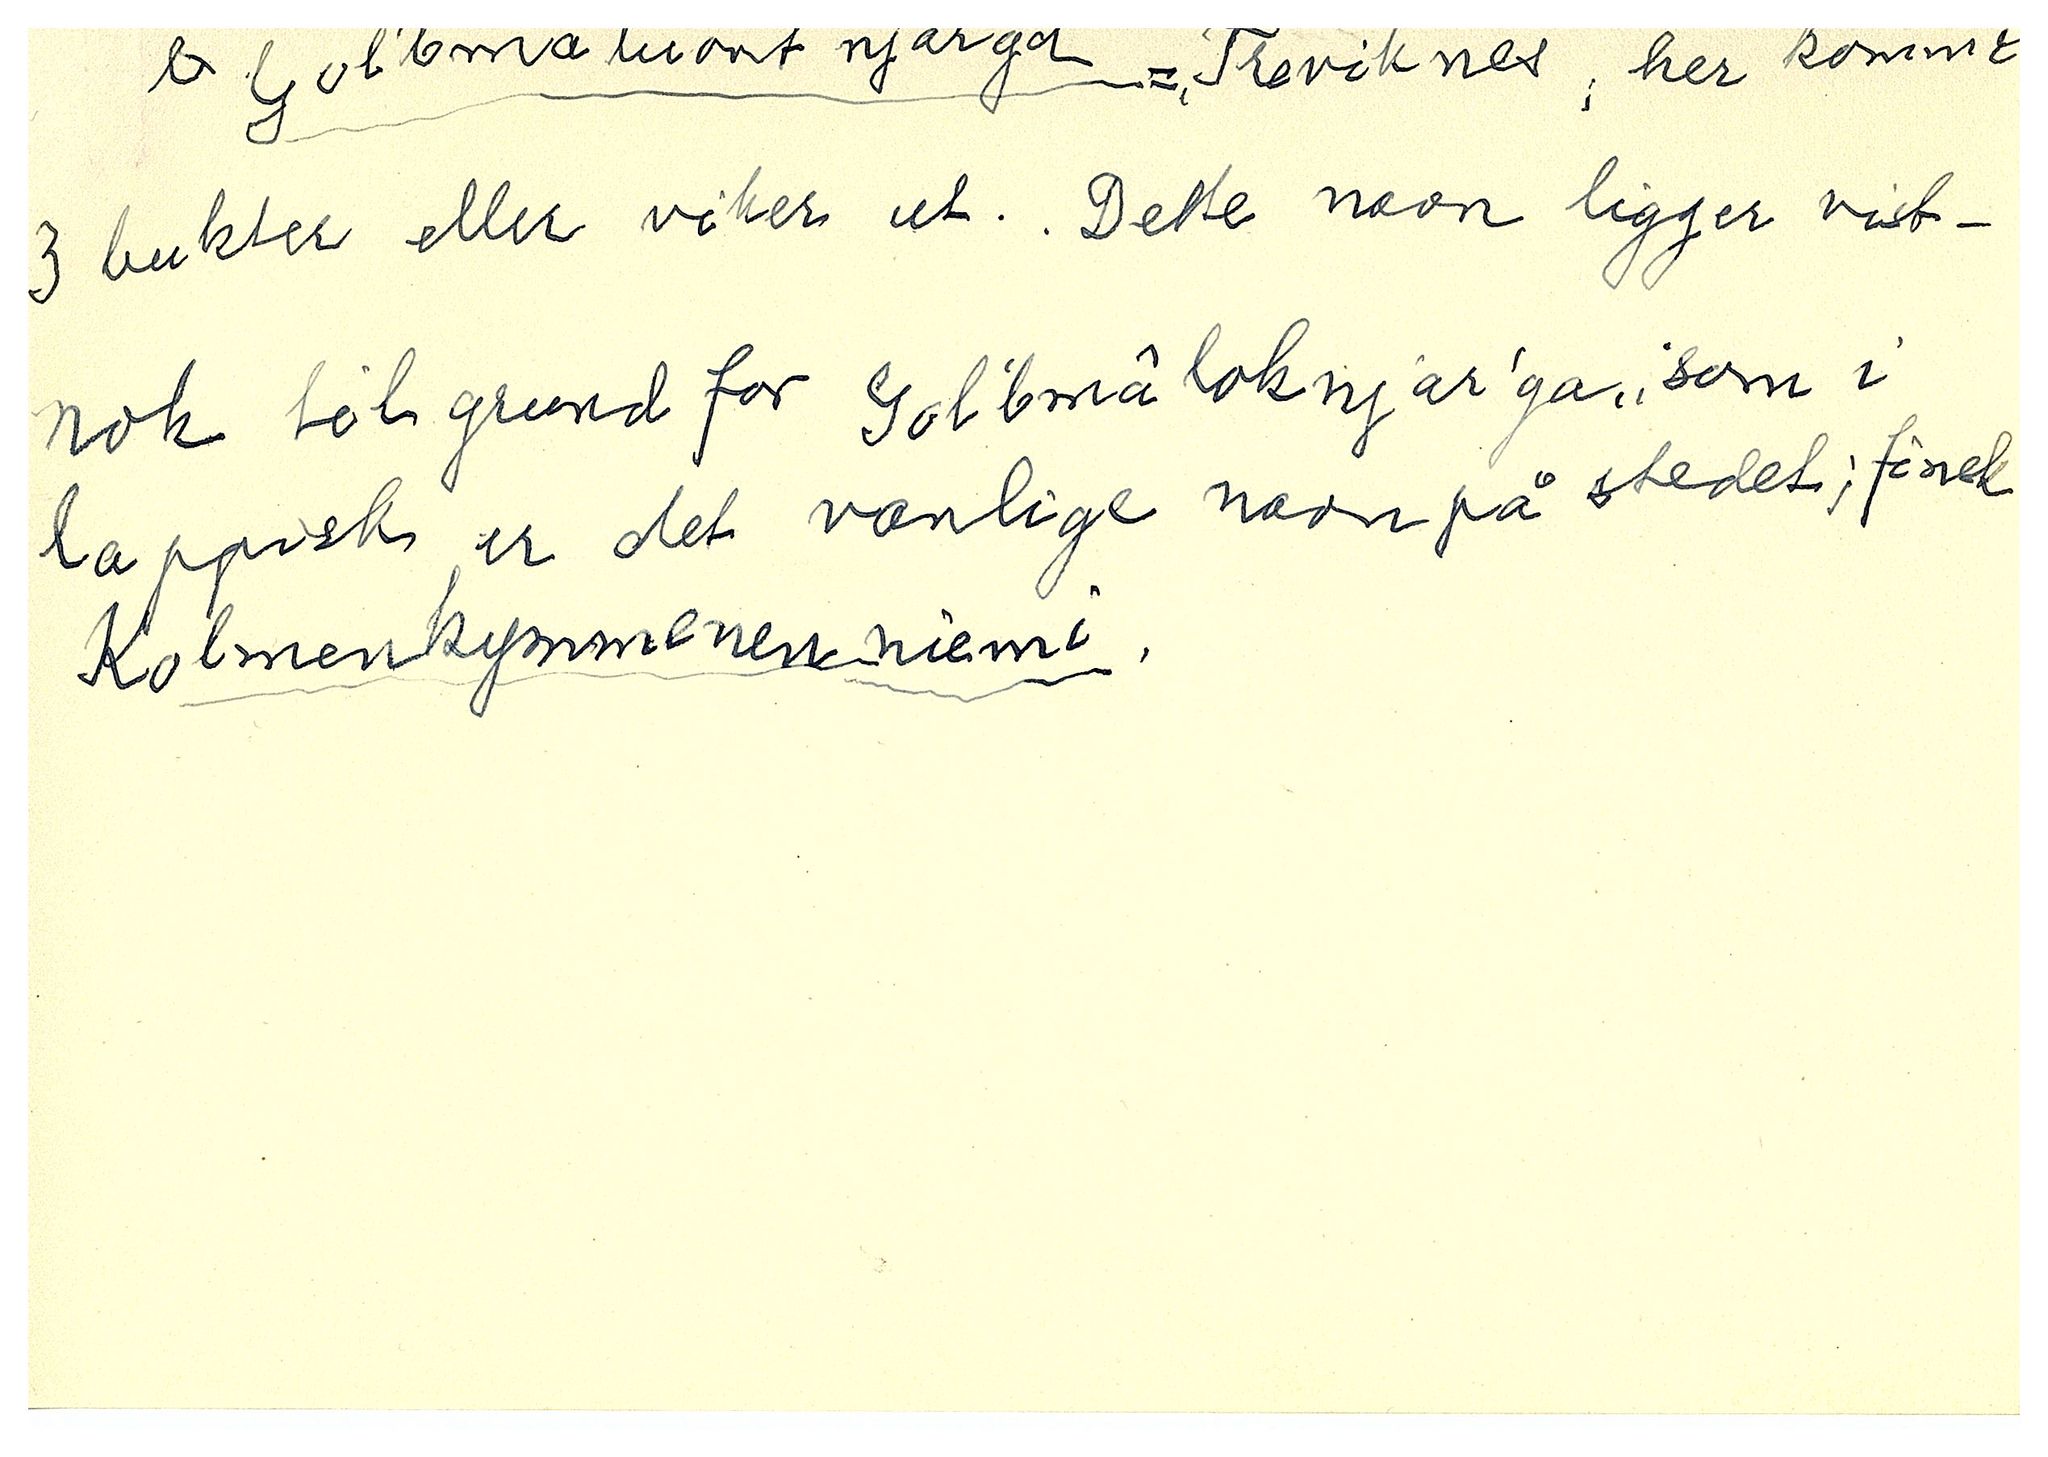 b Gol'bmaluovt njarga = "Treviknes; her komme
3 bukter eller viker ut. Dette navn ligger vist-
nok til grund for Gol'bmâloknjar'ga, som i
lappisk er det vanlige navn på stedet; finsk
Kolmenkymmenen niemi.